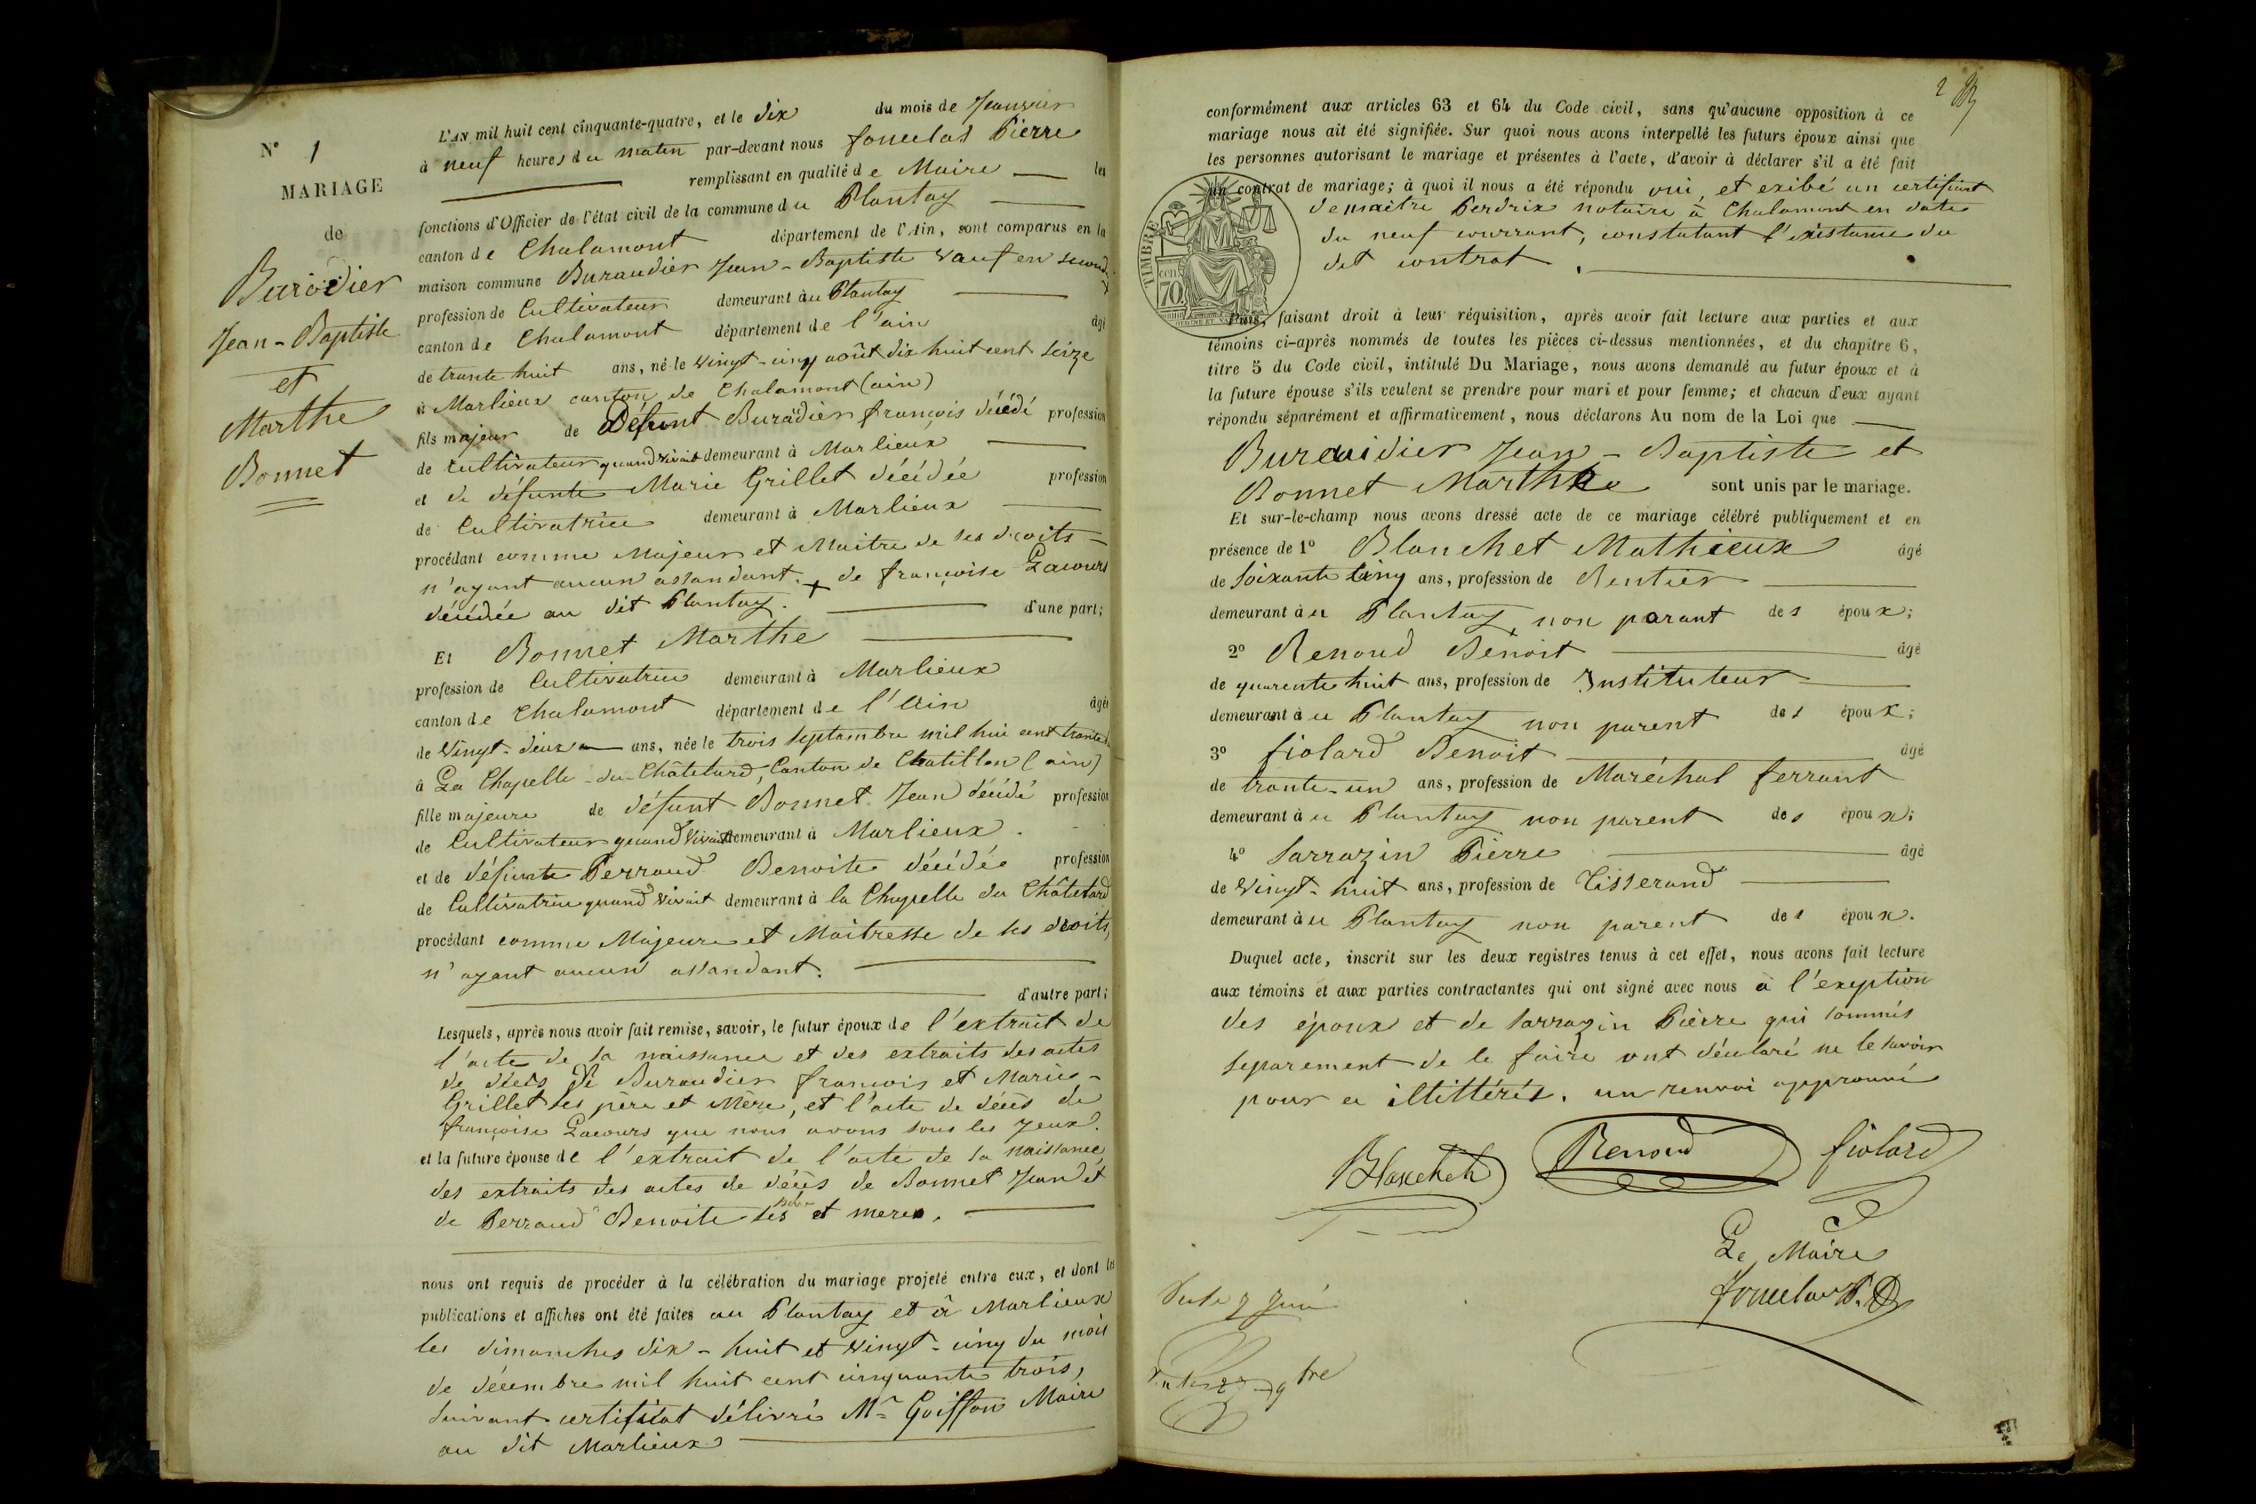 N° 1
MARIAGE
de
Burodier
Jean-Baptiste
et
Marthe
Bonnet
L'AN mil huit cent cinquante-quatre, et le dix du mois de Janvier
à neuf heures du matin par-devant nous Jouclas Pierre
remplissant en qualité de Maire les
fonctions d'Officier de l'état civil de la commune du Plantay
canton de Chalamont département de l'Ain, sont comparus en la
maison commune Buraudier Jean-Baptiste vauf en second
profession de Cultivateur demeurant àu Plantay
canton de Chalamont département de l'ain âgé
de trante huit ans, né le vingt-cinq août dix huit cent seize
à Marlieux canton de Chalamont (ain)
fils majeur de Défunt Buradier françois décédé profession
de cultivateur quand vivait demeurant à Marlieux
et de défunte Marie Grillet décédée profession
de Cultivatrice demeurant à Marlieux
procédant comme Majeur et Maitre de ses droits
n'ayant aucun assandant. + de françoise Lacours
décédée au dit Plantay. d'une part;
Et Bonnet Marthe
profession de Cultivatrice demeurant à Marlieux
canton de Chalamont département de l'Ain âgée
de Vingt-deux ans, née le trois Septembre mil hui cent trante
à La Chapelle-du-Châtelard, Canton de Chatillon (ain)
fille majeure de défunt Bonnet Jean décédé profession
de Cultivateur quand vivait demeurant à Marlieux.
et de défunte Perraud Benoite décédée profession
de Cultivatrice quand vivait demeurant à la Chapelle du Châtelard
procédant comme Majeure et Maitresse de ses droits,
n'ayant aucun assandant.
d'autre part;
Lesquels, après nous avoir fait remise, savoir, le futur époux de l'extrait de
l'acte de sa naissance et des extraits des actes
de décès de Buraudier francois et Marie-
Grillet ses père et Mère, et l'acte de décès de
françoise Lacours que nous avons sous les yeux.
et la future épouse de l'extrait de l'acte de sa naissance
des extraits des actes de décès de Bonnet Jean et
de Perraud Benoite ses père et mere.
nous ont requis de procéder à la célébration du mariage projeté entre eux, et dont les
publications et affiches ont été faites au Plantay et à Marlieux
les dimanches dix-huit et vingt-cinq du mois
de décembre mil huit cent cinquante trois,
suivant certificat délivré Mr Goiffon Maire
au dit Marlieux
2
conformément aux articles 63 et 64 du Code civil, sans qu'aucune opposition à ce
mariage nous ait été signifiée. Sur quoi nous avons interpellé les futurs époux ainsi que
les personnes autorisant le mariage et présentes à l'acte, d'avoir à déclarer s'il a été fait
un contrat de mariage; à quoi il nous a été répondu oui, et exibé un certificat
de maitre Perdrix notaire à Chalamont en date
du neuf courrant, constatant l'existance du
dit contrat.
TIMBRE
70
Puis, faisant droit à leur réquisition, après avoir fait lecture aux parties et aux
témoins ci-après nommés de toutes les pièces ci-dessus mentionnées, et du chapitre 6,
titre 5 du Code civil, intitulé Du Mariage, nous avons demandé au futur époux et à
la future épouse s'ils veulent se prendre pour mari et pour femme; et chacun d'eux ayant
répondu séparément et affirmativement, nous déclarons Au nom de la Loi que
Buraudier Jean-Baptiste et
Bonnet Marthe sont unis par le mariage.
Et sur-le-champ nous avons dressé acte de ce mariage célébré publiquement et en
présence de 1° Blanchet Mathieux âgé
de Soixante Cinq ans, profession de Rentier
demeurant àu Plantay, non parant des époux;
2° Renoud Benoit âgé
de quarente huit ans, profession de Instituteur
demeurant àu Plantay non parent des époux;
3° fiolard Benoit âgé
de trante-un ans, profession de Maréchal ferrant
demeurant àu Plantay non parent des époux;
4° Sarrazin Pierre âgé
de Vingt-huit ans, profession de Tisserand
demeurant àu Plantay non parent des époux.
Duquel acte, inscrit sur les deux registres tenus à cet effet, nous avons fait lecture
aux témoins et aux parties contractantes qui ont signé avec nous à l'exeption
des époux et de Sarrazin Pierre qui sommés
separement de le faire ont déclaré ne le savoir
pour ce illittérés. un renvoi approuvé
Blanchet Renoud fiolard
Le Maire
Jouclas P.